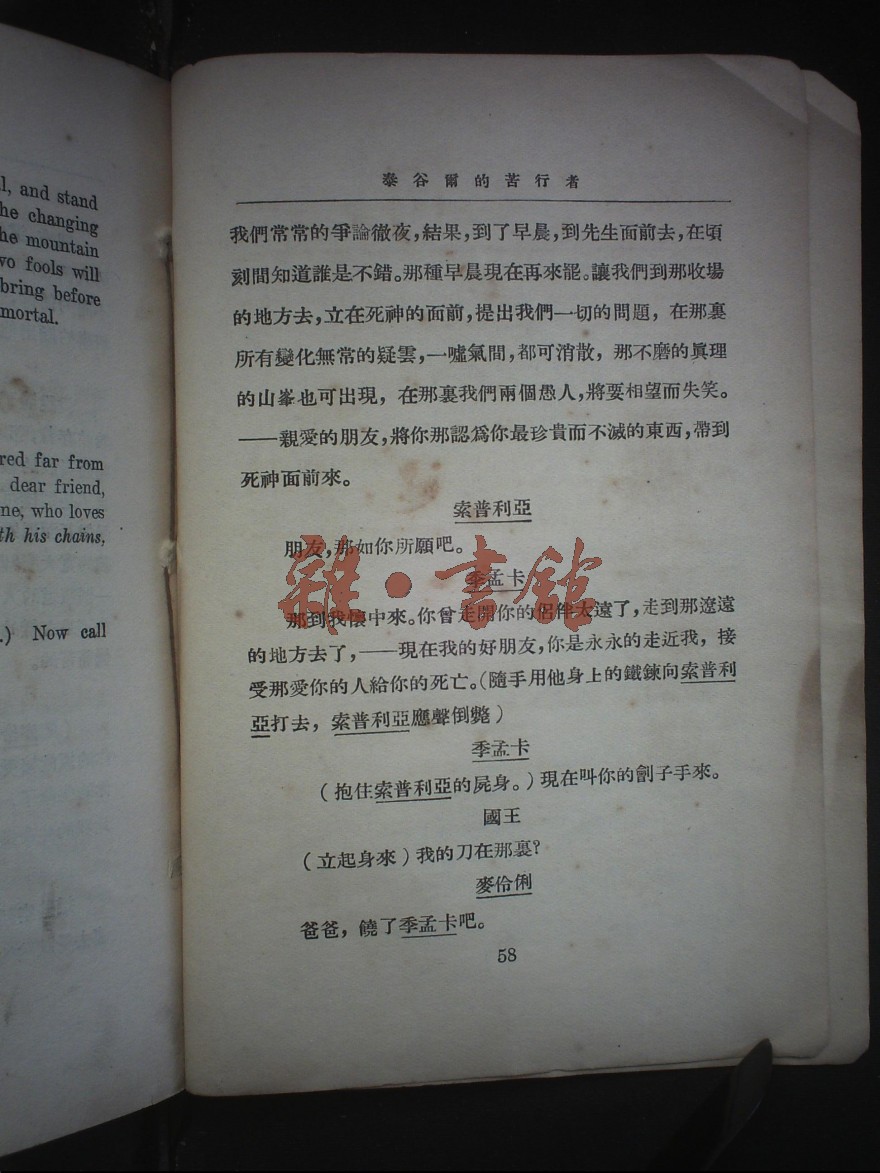 l, and stand
he changing
he mountain
wo fools will
bring before
mortal.
red far from
dear friend,
ne, who loves
th his chains,
.) Now call
泰谷爾的苦行者
我們常常的爭論徹夜,結果,到了早晨,到先生面前去,在頃
刻間知道誰是不錯。那種早晨現在再來罷。讓我們到那收場
的地方去,立在死神的面前,提出我們一切的問題,在那裏
所有變化無常的疑雲,一噓氣間,都可消散,那不磨的眞理
的山峯也可出現,在那裏我們兩個愚人,將要相望而失笑。
——親愛的朋友,將你那認爲你最珍貴而不滅的東西,帶到
死神面前來。
索普利亞
朋友,那如你所願吧。
季孟卡
那到我懷中來。你曾走開你的侶伴太遠了,走到那遼遠
的地方去了,——現在我的好朋友,你是永永的走近我,接
受那愛你的人給你的死亡。(隨手用他身上的鐵鍊向索普利
亞打去,索普利亞應聲倒斃)
季孟卡
(抱住索普利亞的屍身。)現在叫你的劊子手來。
國王
(立起身來)我的刀在那裏?
麥伶俐
爸爸,饒了季孟卡吧。
58
雜·書館